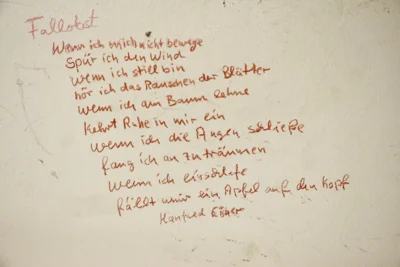 Fallobst
Wenn ich mich nicht bewege
Spür ich den Wind
wenn ich still bin
hör ich das Rauschen der Blätter
wenn ich am Baum lehne
Kehrt Ruhe in mir ein
wenn ich die Augen schließe
fang ich an zu träumen
wenn ich einschlafe
fällt mir ein Apfel auf den Kopf
Manfred